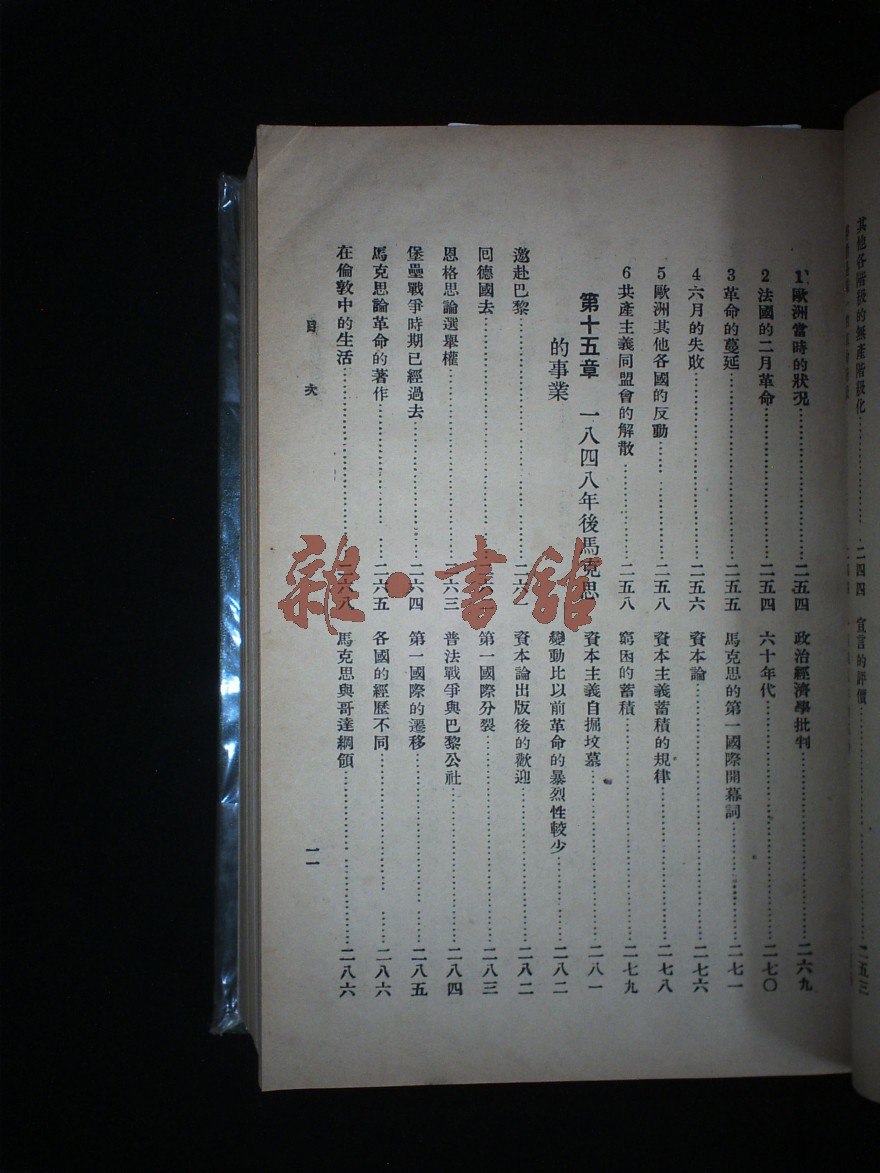 其他各階級的無產階級化……二四四
宣言的評價……二五三
1 歐洲當時的狀況……二五四
2 法國的二月革命……二五四
3 革命的蔓延……二五五
4 六月的失敗……二五六
5 歐洲其他各國的反動……二五八
6 共產主義同盟會的解散……二五八
第十五章 一八四八年後馬克思
的事業
邀赴巴黎……二六一
回德國去……二六
恩格思論選舉權……二六三
堡壘戰爭時期已經過去……二六四
馬克思論革命的著作……二六五
在倫敦中的生活……二六八
政治經濟學批判……二六九
六十年代……二七〇
馬克思的第一國際開幕詞……二七一
資本論……二七六
資本主義蓄積的規律……二七八
窮困的蓄積……二七九
資本主義自掘坟墓……二八一
變動比以前革命的暴烈性較少……二八二
資本論出版後的歡迎……二八二
第一國際分裂……二八三
普法戰爭與巴黎公社……二八四
第一國際的遷移……二八五
各國的經歷不同……二八六
馬克思與哥達綱領……二八六
目次
一一
雜·書舘